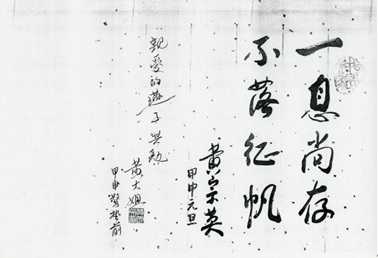 一息尚存
不落征帆
黄宗英
甲申元旦
亲爱的燕子共勉
黄大姐
甲申惊蛰前